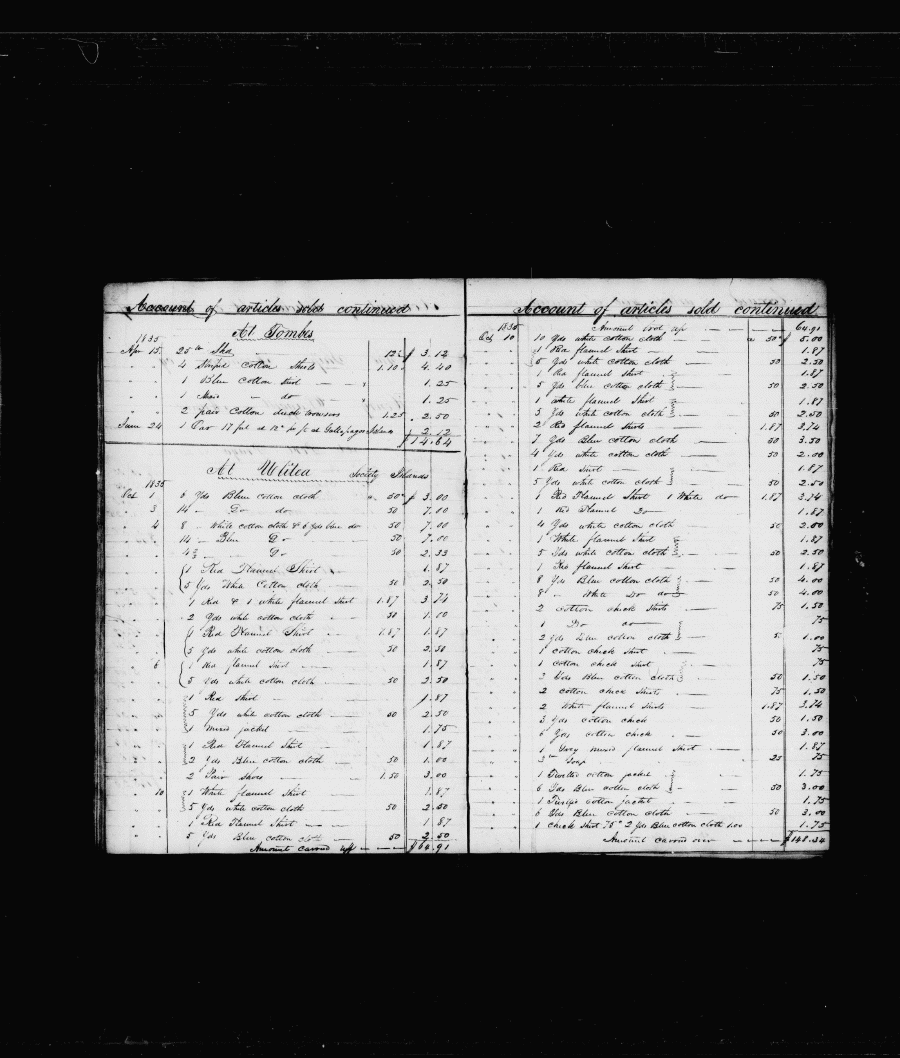 Account of articles sold continued
At Tombes
1835
Apr 15 25 lb 12½ $ 3.12
" " 4 Striped Cotton Shirts 1.10 4.40
" " 1 Blue Cotton shirt — " 1.25
" " 1 — do " 1.25
" " 2 pair Cotton duck trowsers 1.25 2.50
June 24 1 Oar 17 feet at 12½ pr ft at Gallapagos Islands 2.12
$14.64
At Ulitea Society Islands
1835
Oct 1 6 Yds Blue cotton cloth " 50 $ 3.00
" 3 14 — Do do 50 7.00
" 4 8 — White cotton cloth & 6 yds blue do 50 7.00
" " 14 — Blue Do 50 7.00
" " 4 2/3 — — Do 50 2.33
" " 1 Red Flannel Shirt — 1.87
" " 5 Yds White Cotton cloth 50 2.50
" " 1 Red & 1 white flannel shirt 1.87 3.74
" " 2 Yds white cotton cloth " 50 1.00
" " 1 Red Flannel Shirt — 1.87 1.87
" " 5 Yds white cotton cloth — 50 2.50
" 6 1 Red flannel shirt — 1.87
" " 5 Yds white cotton cloth . 50 2.50
" " 1 Red shirt — 1.87
" " 5 Yds white cotton cloth — 50 2.50
" " 1 mixed jacket 1.75
" " 1 Red Flannel Shirt — 1.87
" " 2 Yds Blue cotton cloth — 50 1.00
" " 2 Pair Shoes — 1.50 3.00
" 10 1 White flannel Shirt 1.87
" " 5 Yds white cotton cloth 50 2.50
" " 1 Red Flannel Shirt — 1.87
" " 5 Yds Blue cotton cloth — 50 2.50
Amount carried up — $64.91
Account of articles sold continued
1835 Amount brod up — 64.91
Oct 10 10 Yds white cotton cloth — a 50 $ 5.00
" " 1 Red flannel Shirt — 1.87
" " 5 Yds white cotton cloth — 50 2.50
" " 1 Red flannel shirt — 1.87
" " 5 Yds blue cotton cloth 50 2.50
" " 1 white flannel Shirt 1.87
" " 5 Yds white cotton cloth 50 2.50
" " 2 Red flannel Shirts — 1.87 3.74
" " 7 Yds Blue cotton cloth — 50 3.50
" " 4 Yds white cotton cloth 50 2.00
" " 1 Red Shirt — 1.87
" " 5 Yds white cotton cloth 50 2.50
" " 1 Red Flannel Shirt 1 White do 1.87 3.74
" " 1 Red Flannel Do — 1.87
" " 4 Yds white cotton cloth 50 2.00
" " 1 White flannel Shirt 1.87
" " 5 Yds white cotton cloth 50 2.50
" " 1 Red flannel Shirt — 1.87
" " 8 Yds Blue cotton cloth 50 4.00
" " 8 — White Do do 50 4.00
" " 2 cotton check Shirts — 75 1.50
" " 1 Do do 75
" " 2 Yds Blue cotton cloth — 5 1.00
" " 1 cotton check shirt — 75
" " 1 cotton check Shirt — 75
" " 3 Yds Blue cotton cloth 50 1.50
" " 2 cotton check Shirts — 75 1.50
" " 2 White flannel Shirts — 1.87 3.74
" " 3 Yds cotton check 50 1.50
" " 6 Yds cotton check — 50 3.00
" " 1 Grey mixed flannel Shirt — 1.87
" " 3 lb Soap 25 75
" " 1 Twilled cotton jacket 1.75
" " 6 Yds Blue cotton cloth 50 3.00
" " 1 cotton jacket 1.75
" " 6 Yds Blue cotton cloth 50 3.00
" " 1 check Shirt 75 2 Yds Blue cotton cloth 1.00 1.75
Amount carried over — $148.34